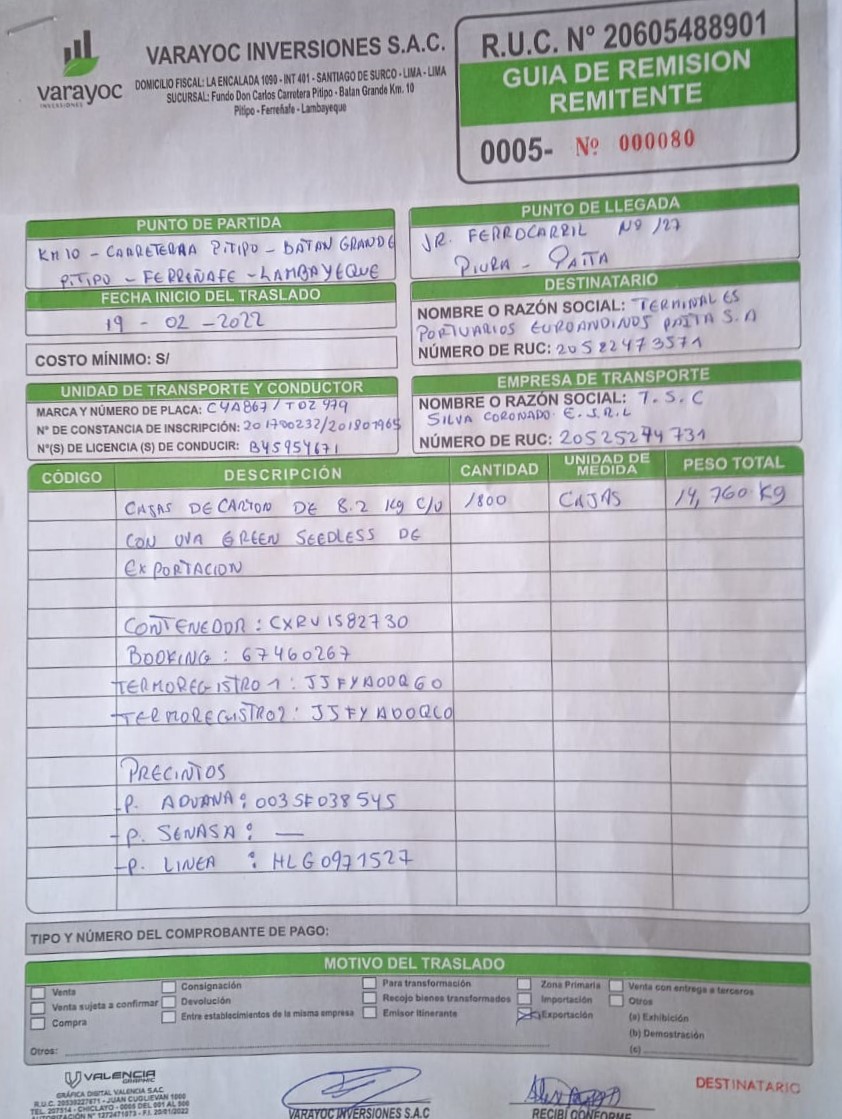 varayoc
INVERSIONES
VARAYOC INVERSIONES S.A.C.
DOMICILIO FISCAL: LA ENCALADA 1090 - INT 401 - SANTIAGO DE SURCO - LIMA - LIMA
SUCURSAL: Fundo Don Carlos Carretera Pitipo - Batan Grande Km. 10
Pitipo - Ferreñafe - Lambayeque
R.U.C. N° 20605488901
GUIA DE REMISION
REMITENTE
0005- Nº 000080
PUNTO DE PARTIDA
Km 10 - CARRETERRA PITIPO - BATAN GRANDE
PITIPO - FERREÑAFE - LAMBAYEQUE
PUNTO DE LLEGADA
JR. FERROCARRIL Nº 127
PIURA - PAITA
FECHA INICIO DEL TRASLADO
19 - 02 - 2022
COSTO MÍNIMO: S/
DESTINATARIO
NOMBRE O RAZÓN SOCIAL: TERMINALES
PORTUARIOS EUROANDINOS PAITA S.A
NÚMERO DE RUC: 20522473571
UNIDAD DE TRANSPORTE Y CONDUCTOR
MARCA Y NÚMERO DE PLACA: C4A867 / T0Z 979
N° DE CONSTANCIA DE INSCRIPCIÓN: 201700232/201801965
N°(S) DE LICENCIA (S) DE CONDUCIR: B45954671
EMPRESA DE TRANSPORTE
NOMBRE O RAZÓN SOCIAL: T.S.C
SILVA CORONADO E.I.R.L
NÚMERO DE RUC: 20525274731
CÓDIGO DESCRIPCIÓN CANTIDAD UNIDAD DE MEDIDA PESO TOTAL
CAJAS DE CARTON DE 8.2 Kg C/U 1800 CAJAS 14,760 KG
CON UVA GREEN SEEDLESS DE
EXPORTACION
CONTENEDOR : CXRU1582730
BOOKING : 67460267
TERMOREGISTRO 1 : JJFYA00Q60
TERMOREGISTRO 2 : JJFYA00QC0
PRECINTOS
-P. ADUANA : 003SF038545
-P. SENASA : —
-P. LINEA : HLG0971527
TIPO Y NÚMERO DEL COMPROBANTE DE PAGO:
MOTIVO DEL TRASLADO
Venta Consignación Para transformación Zona Primaria Venta con entrega a terceros
Venta sujeta a confirmar Devolución Recojo bienes transformados Importación Otros
Compra Entre establecimientos de la misma empresa Emisor Itinerante Exportación (a) Exhibición
(b) Demostración
Otros: (c)
VALENCIA
GRAPHIC
GRÁFICA DIGITAL VALENCIA S.A.C
R.U.C. 20539227671 - JUAN CUGLIEVAN 1000
TEL. 207514 - CHICLAYO - 0005 DEL 001 AL 500
AUTORIZACIÓN N° 1272471873 - F.I. 20/01/2022
VARAYOC INVERSIONES S.A.C
RECIBI CONFORME
DESTINATARIO